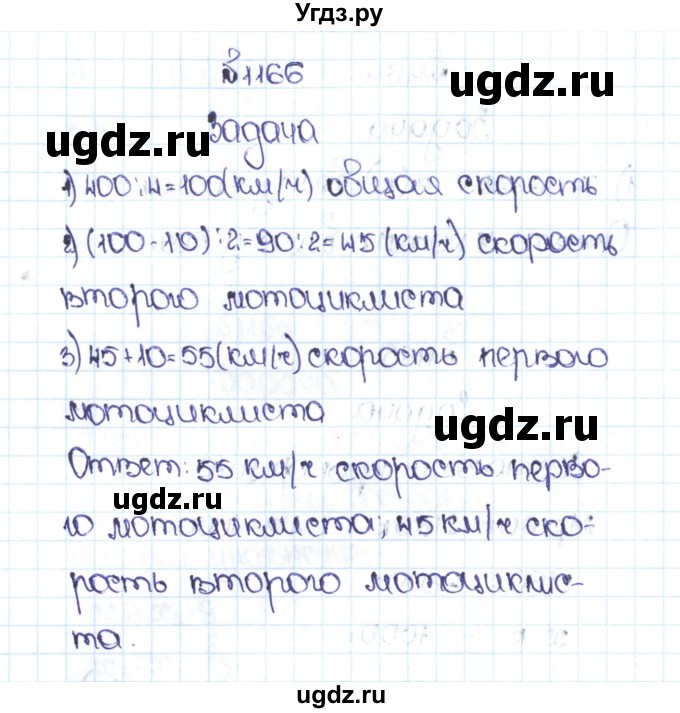 Угдз.ру
№1166
ugdz.ru
Задача
ugdz.ru
1) 400:4=100(км/ч) общая скорость
2) (100-10):2=90:2=45(км/ч) скорость
второго мотоциклиста
3) 45+10=55(км/ч) скорость первого
мотоциклиста
ugdz.ru
Ответ: 55 км/ч скорость перво-
ugdz.ru
го мотоциклиста; 45 км/ч ско-
рость второго мотоциклис-
та.
ugdz.ru